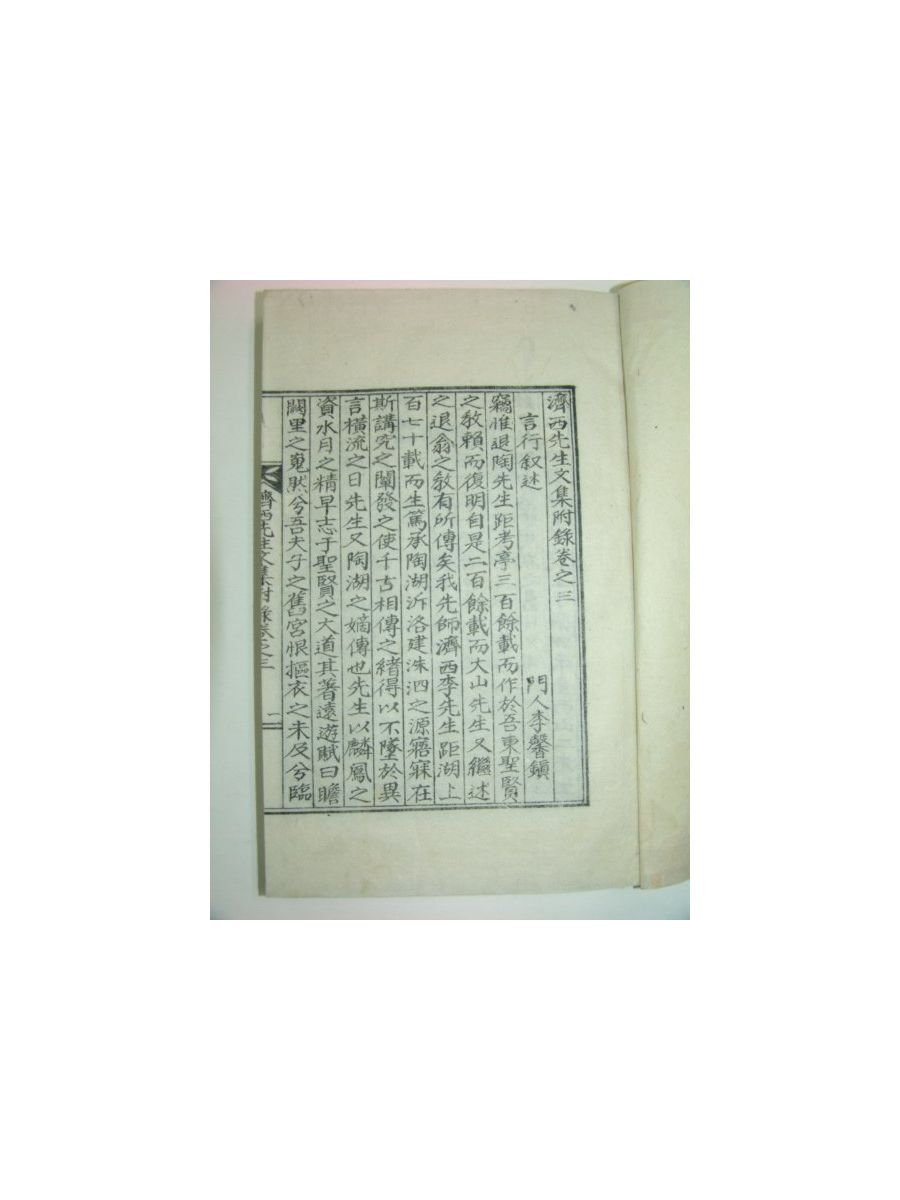 濟西先生文集附錄卷之三
言行叙述
門人李馨鎭
竊惟退陶先生距考亭三百餘載而作於吾東聖賢
之教賴而復明自是二百餘載而大山先生又繼述
之退翁之教有所傳矣我先師濟西李先生距湖上
百七十載而生篤承陶湖沂洛建洙泗之源寤寐在
斯講究之闡發之使千古相傳之緖得以不墜於異
言橫流之日先生又陶湖之嫡傳也先生以麟鳳之
資水月之精早志于聖賢之大道其著遠遊賦曰瞻
闕里之嵬然兮吾夫子之舊宮恨摳衣之未及兮臨
濟西先生文集附錄卷之三
一